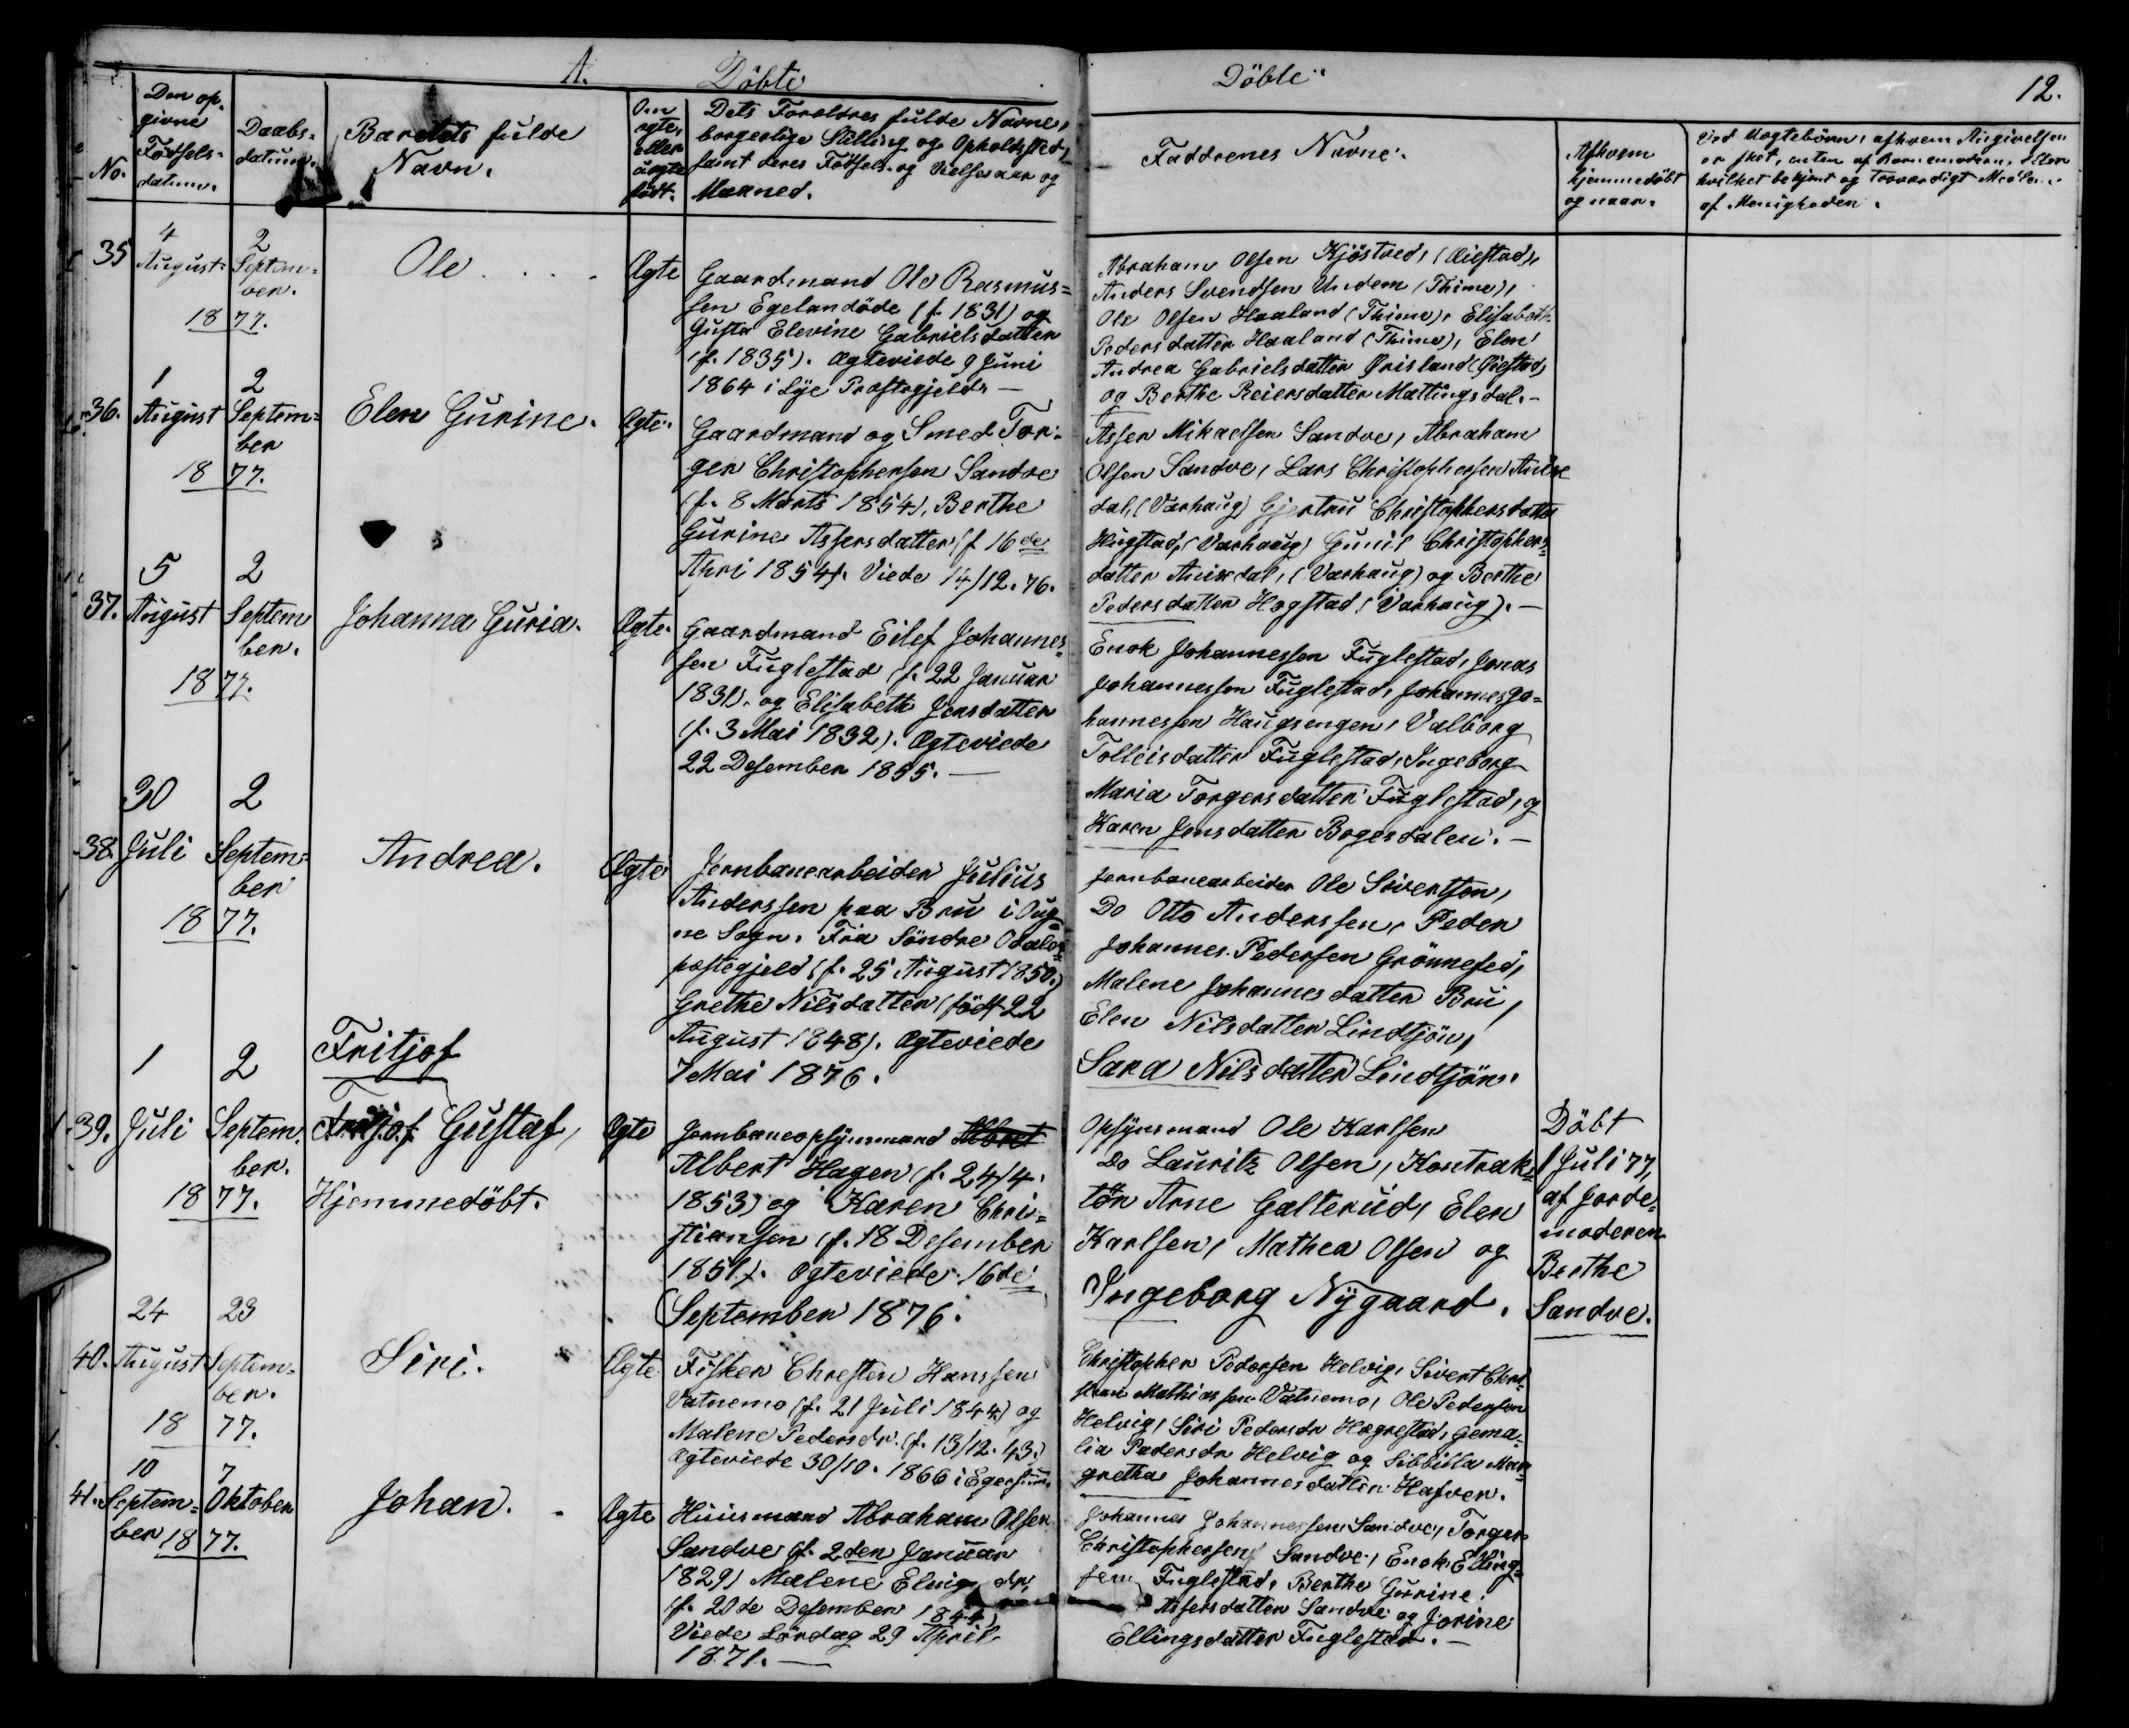 A. Döbte
Döbte
12.
No.
Den op-
givne
Fødsels-
datum.
Daabs-
datum.
Barnets fulde
Navn.
Om
ægte
eller
uægte
født.
Dets Forældres fulde Navne,
borgerlige Stilling og Opholdssted,
samt deres Fødsels- og Vielsesaar og
Maaned.
Faddrenes Navne.
Afhvem
hjemmedöbt
og naar.
Ved Uægtebörn, afhvem Angivelsen
er sket, enten af Barnemoderen, eller
hvilket bekjent og troværdigt Medlem
af Menigheden.
35
4
August
2
Septem-
ber.
1877.
Ole
Ægte
Gaardmand Ole Rasmus=
sen Egelandöde (f. 1831) og
Gusta Elevine Gabrielsdatter
(f. 1835). Ægteviede 9 Juni
1864 i Lye Præstegjeld. —
Abraham Olsen Kjöstved,
Anders Svendsen Undem (Thime),
Ole Olsen Haaland (Thime), Elisabeth
Pedersdatter Haaland (Thime), Elen
Andrea Gabrielsdatter
og Berthe Reiersdatter Mattingsdal. —
36.
1
August
2
Septem=
ber
1877.
Elen Gurine.
Ægte.
Gaardmand og Smed Tor-
ger Christophersen Sandve
(f. 8 Marts 1854), Berthe
Gurine Assersdatter (f 16de
Apri 1854). Viede 14/12. 76.
Asser Mikaelsen Sandve, Abraham
Olsen Sandve, Lars Christophersen
dal, (Varhaug) Gjertru Christophersdatter
Hugstad, (Varhaug) Gunil Christophers=
datter (Varhaug) og Berthe
Pedersdatter Hogstad, (Varhaug). —
37.
5
August
2
Septem
ber.
1877.
Johanna Guria.
Ægte.
Gaardmand Eilef Johannes=
sen Fuglestad (f. 22 Januar
1831), og Elisabeth Jensdatter
(f. 3 Mai 1832). Ægteviede
22 Desember 1855. —
Enok Johannessen Fuglestad, Jonas
Johannessen Fuglestad, Johannes Jo=
hannessen Haugsengen, Valborg
Tolleisdatter Fuglestad, Ingeborg
Maria Torgersdatter Fuglestad, og
Karen Jensdatter Bogesdalen. —
38.
30
Juli
2
Septem=
ber
1877.
Andrea.
Ægte
Jernbanearbeider Julius
Anderssen paa Bru i Oug=
ne Sogn. Fra Söndre Odals=
pæstegjeld (f. 25 August 1850.)
Grethe Nilsdatter (födt 22
August 1848). Ægteviede
7 Mai 1876.
Jernbanearbeider Ole Sivertsen,
Do Otto Anderssen, Peder
Johannes Pedersen
Malene Johannesdatter Bru,
Elen Nilsdatter Lindtjön,
Sara Nilsdatter Lindtjön.
39.
1
Juli
2
Septem.
ber.
1877.
Fritjof
Gustaf,
Hjemmedöbt.
Ægte
Jernbaneopsynsmand Albret
Albert Hagen (f. 24/4.
1853) og Karen Chri=
stiansen (f. 18 Desember
1851). Ægteviede 16de
September 1876.
Opsynsmand Ole Karlsen
Do Lauritz Olsen, Kontrak=
tör Arne Galterud, Elen
Karlsen, Mathea Olsen og
Ingeborg Nygaard.
Döbt
1 Juli 77,
af Jorde=
moderen
Berthe
Sandve.
40.
24
August
23
Septem=
ber.
1877.
Siri.
Ægte
Fisker Chresten Hanssen
Vatnemo (f. 21 Juli 1844) og
Malene Pedersdr. (f. 13/12. 43.)
Ægteviede 30/10. 1866 i Egersund.
Christopher Pedersen Helvig, Sivert Chri=
stian Mathiassen Vatnemo, Ole Pedersen
Helvig, Siri Pedersdr Hægrestad, Gema=
lia Pedersdr Helvig og Sibbilla Mar=
gretha Johannesdatter Hafver.
41.
10
Septem=
ber
7
Oktober
1877.
Johan.
Ægte
Huusmand Abraham Olsen
Sandve (f. 2den Januar
1829) Malene dr.
(f. 20de Desember 1844)
Viede Lördag 29 April
1871. —
Johannes Johannessen Sandve, Torger
Christophersen Sandve, Enok Elling=
sen Fuglestad, Berthe Gurine
Assersdatter Sandve og Jorine
Ellingsdatter Fuglestad. —